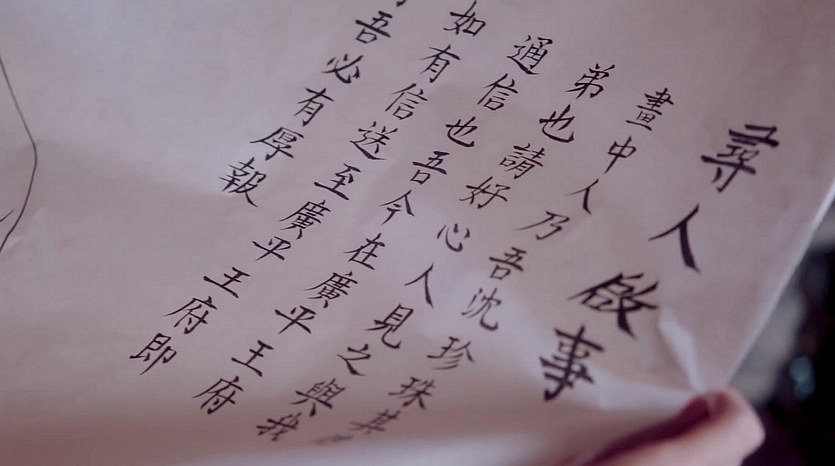 尋人啟事
畫中人乃吾沈珍珠其
弟也請好心人見之與我
通信也吾今在廣平王府
如有信送至廣平王府即
吾必有厚報